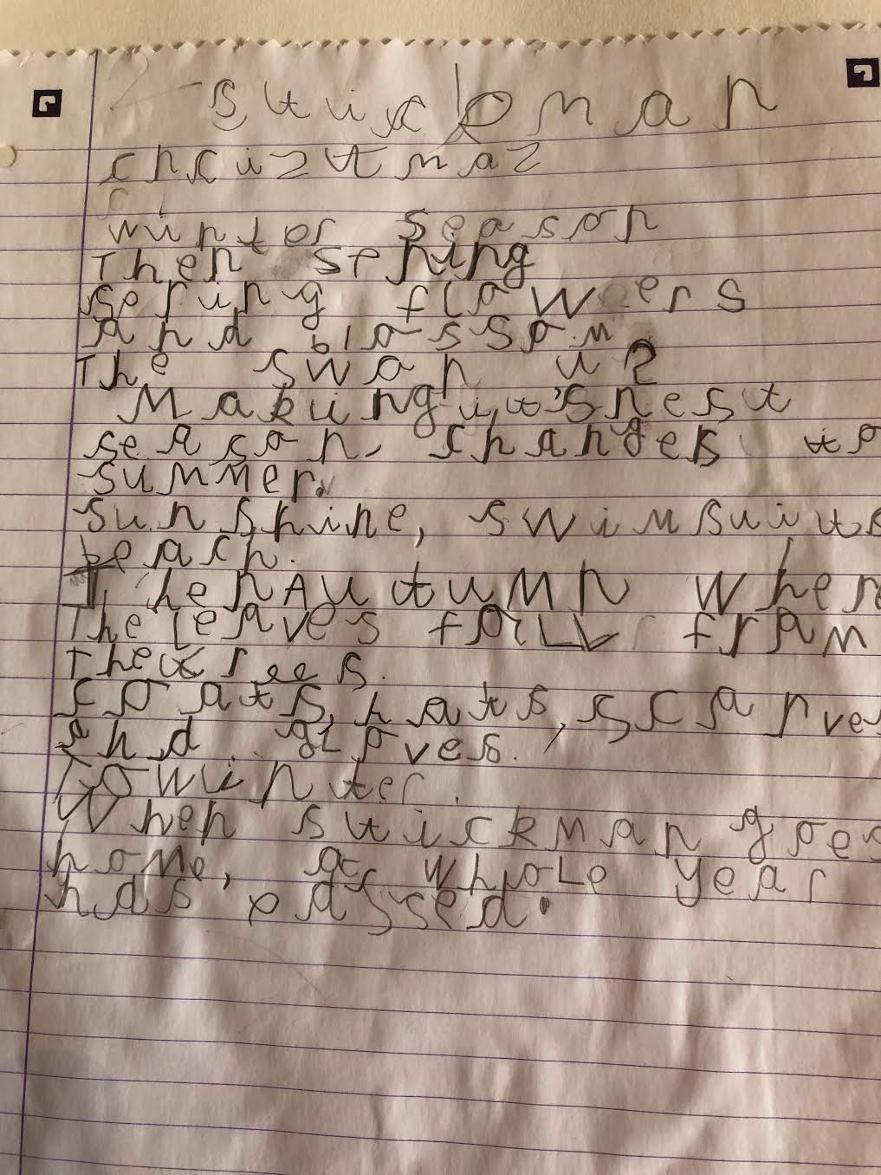 stickman
christmas
winter season
Then spring
spring flowers
and blossom
The swan is
Making it's nest
season changes to
summer.
sunshine, swimsuits
beach.
Then Autumn when
The leaves fall from
The trees.
coats, hats, scarves
and gloves.
To winter.
When stickman goes
home, a whole year
has passed.